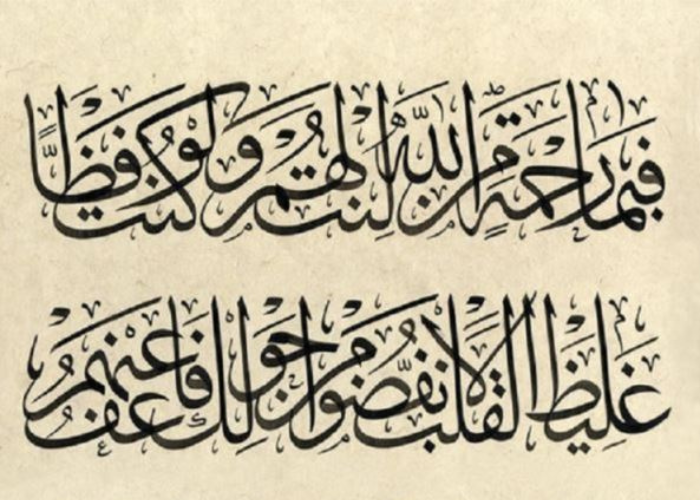 فَبِمَا رَحْمَةٍ مِّنَ اللَّهِ لِنتَ لَهُمْ وَلَوْ كُنتَ فَظًّا
غَلِيظَ الْقَلْبِ لَانفَضُّوا مِنْ حَوْلِكَ فَاعْفُ عَنْهُمْ